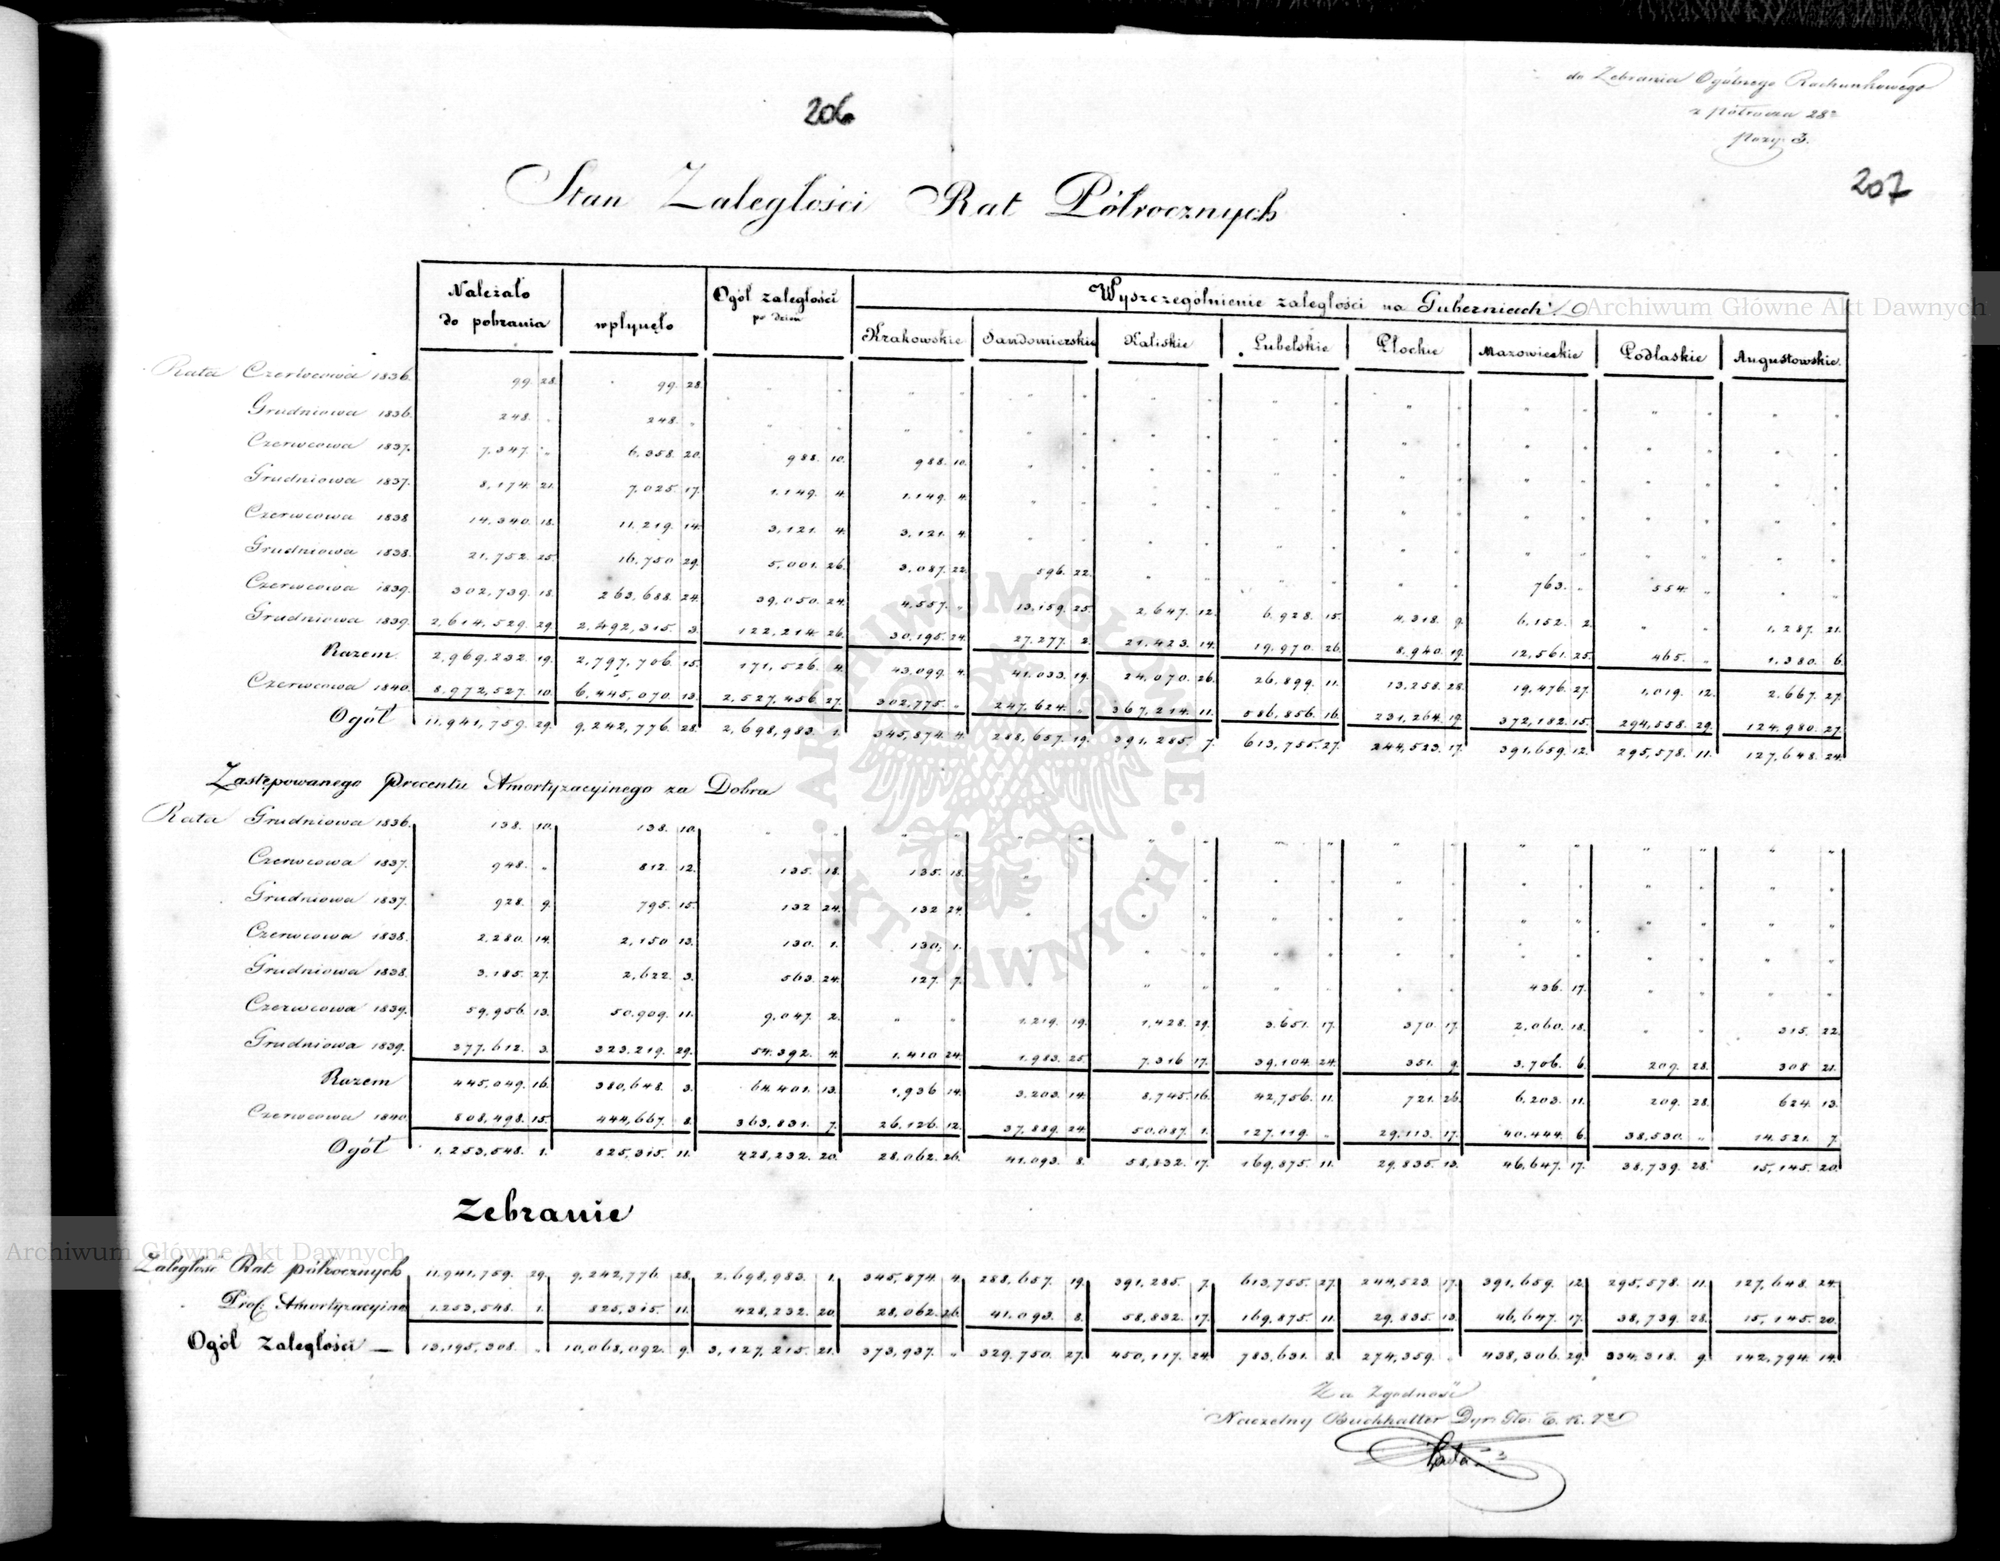 do Zebrania Ogólnego Rachunkowego
z półrocza 28º
Pozy: 3.
206
207
Stan Zaległości Rat Półrocznych
Należało do pobrania | wpłynęło | Ogół zaległości po dzień | Wyszczególnienie zaległości na Guberniach
Krakowskie | Sandomierskie | Kaliskie | Lubelskie | Płockie | Mazowieckie | Podlaskie | Augustowskie.
Rata Czerwcowa 1836. 99. 28. 99. 28. " " " " " " " " " " " " " " " " " "
Grudniowa 1836. 248. " 248. " " " " " " " " " " " " " " " " " " "
Czerwcowa 1837. 7,347. " 6,358. 20. 988. 10. 988. 10. " " " " " " " " " " " " " "
Grudniowa 1837. 8,174. 21. 7,025. 17. 1,149. 4. 1,149. 4. " " " " " " " " " " " " " "
Czerwcowa 1838 14,340. 18. 11,219. 14. 3,121. 4. 3,121. 4. " " " " " " " " " " " " " "
Grudniowa 1838. 21,752. 25. 16,750 29. 5,001. 26. 3,087. 22. 596. 22. " " " " " " 763. " 554. " " "
Czerwcowa 1839. 302,739. 18. 263,688. 24. 39,050. 24. 4,557. " 13,159. 25. 2,647. 12. 6,928. 15. 4,318. 9. 6,152. 2. " " 1,287. 21.
Grudniowa 1839. 2,614,529. 29. 2,492,315. 3. 122,214. 26. 30,195. 24. 27,277. 2. 21,423. 14. 19,970. 26. 8,940. 19. 12,561. 25. 465. " 1,380. 6.
Razem. 2,969,232. 19. 2,797,706. 15. 171,526. 4. 43,099. 4. 41,033. 19. 24,070. 26. 26,899. 11. 13,258. 28. 19,476. 27. 1,019. 12. 2,667. 27.
Czerwcowa 1840. 8,972,527. 10. 6,445,070. 13. 2,527,456. 27. 302,775. " 247,624. " 367,214. 11. 586,856. 16. 231,264. 19. 372,182. 15. 294,558. 29. 124,980. 27.
Ogół 11,941,759. 29. 9,242,776. 28. 2,698,983. 1. 345,874. 4. 288,657. 19. 391,285. 7. 613,755. 27. 244,523. 17. 391,659. 12. 295,578. 11. 127,648. 24.
Zastępowanego Procentu Amortyzacyinego za Dobra
Rata Grudniowa 1836. 138. 10. 138. 10. " " " " " " " " " " " " " " " " " "
Czerwcowa 1837. 948. " 812. 12. 135. 18. 135. 18. " " " " " " " " " " " " " "
Grudniowa 1837. 928. 9. 795. 15. 132 24. 132 24. " " " " " " " " " " " " " "
Czerwcowa 1838. 2,280. 14. 2,150 13. 130. 1. 130. 1. " " " " " " " " " " " " " "
Grudniowa 1838. 3,185. 27. 2,622. 3. 563. 24. 127. 7. " " " " " " " " 436. 17. " " " "
Czerwcowa 1839. 59,956. 13. 50,909. 11. 9,047. 2. " " 1,219. 19. 1,428. 29. 3,651. 17. 370. 17. 2,060. 18. " " 315. 22.
Grudniowa 1839. 377,612. 3. 323,219. 29. 54,392. 4. 1,410 24. 1,983. 25. 7,316 17. 39,104. 24. 351. 9. 3,706. 6. 209. 28. 308 21.
Razem 445,049. 16. 380,648. 3. 64,401. 13. 1,936 14. 3,203. 14. 8,745. 16. 42,756. 11. 721. 26. 6,203. 11. 209. 28. 624. 13.
Czerwcowa 1840. 808,498. 15. 444,667. 8. 363,831. 7. 26,126. 12. 37,889. 24. 50,087. 1. 127,119. " 29,113. 17. 40,444. 6. 38,530. " 14,521. 7.
Ogół 1,253,548. 1. 825,315. 11. 428,232. 20. 28,062. 26. 41,093. 8. 58,832. 17. 169,875. 11. 29,835. 13. 46,647. 17. 38,739. 28. 15,145. 20.
Zebranie
Zaległość Rat półrocznych 11,941,759. 29. 9,242,776. 28. 2,698,983. 1. 345,874. 4. 288,657. 19. 391,285. 7. 613,755. 27. 244,523. 17. 391,659. 12. 295,578. 11. 127,648. 24.
Prof: Amortyzacyine 1,253,548. 1. 825,315. 11. 428,232. 20 28,062. 26. 41,093. 8. 58,832. 17. 169,875. 11. 29,835. 13. 46,647. 17. 38,739. 28. 15,145. 20.
Ogół zaległości 13,195,308. " 10,068,092. 9. 3,127,215. 21. 373,937. " 329,750. 27. 450,117. 24. 783,631. 8. 274,359. " 438,306. 29. 334,318. 9. 142,794. 14.
Za Zgodność
Naczelny Buchhalter Dyr:
Archiwum Główne Akt Dawnych
Archiwum Główne Akt Dawnych
ARCHIWUM GŁÓWNE AKT DAWNYCH